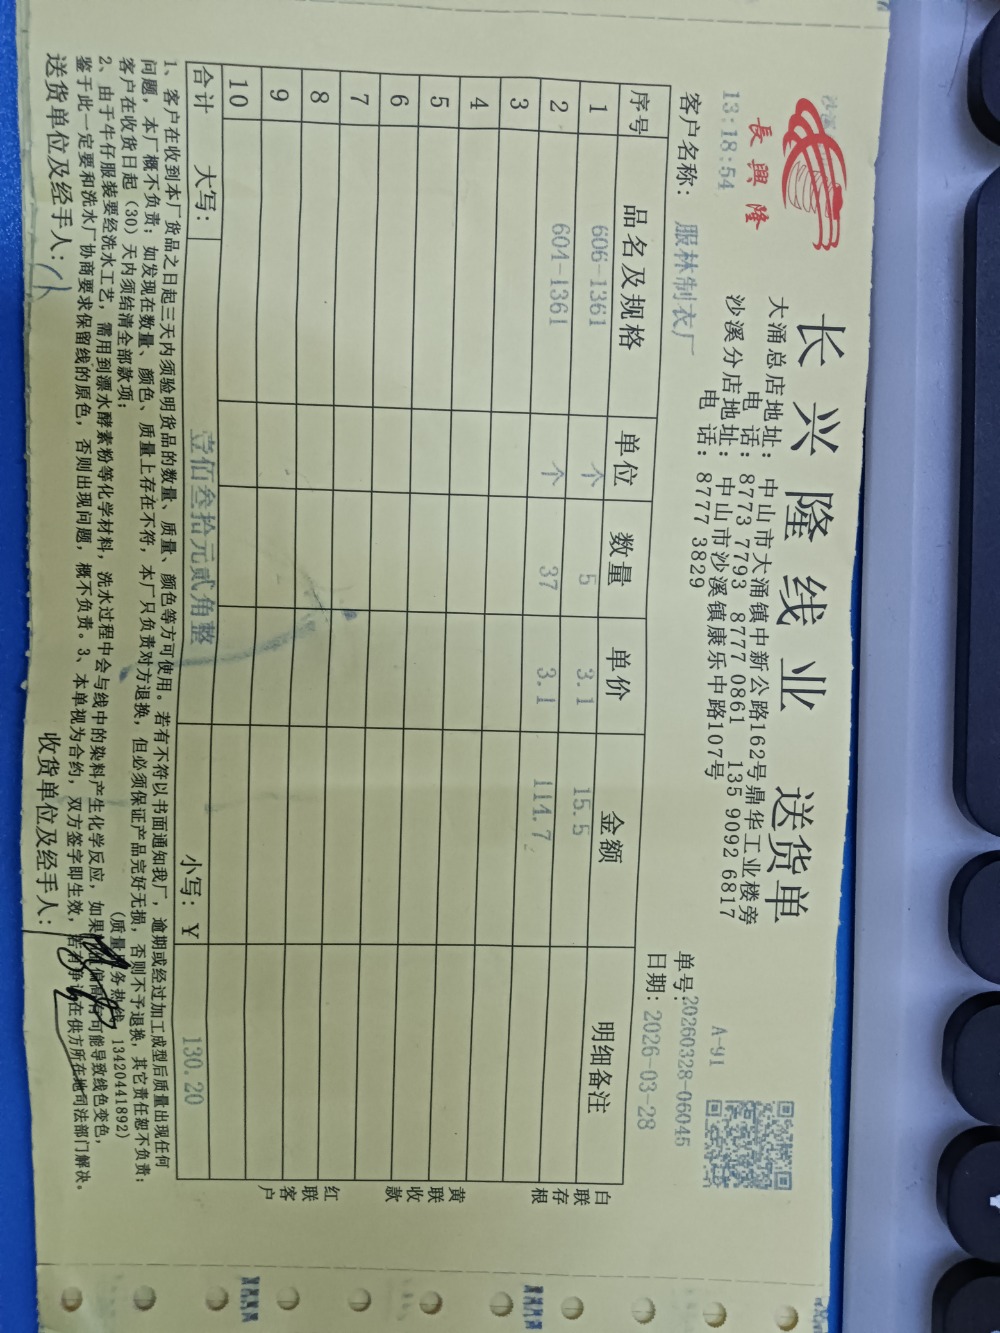 长兴隆线业 送货单
長興隆
大涌总店地址：中山市大涌镇中新公路162号鼎华工业楼旁
电 话：8773 7793 8777 0861 135 9092 6817
沙溪分店地址：中山市沙溪镇康乐中路107号
电 话：8777 3829
13:18:54
A-91
单号：20260328-06045
客户名称：服林制衣厂
日期：2026-03-28
序号 品名及规格 单位 数量 单价 金额 明细备注
1 606-1361 个 5 3.1 15.5
2 604-1361 个 37 3.1 114.7
3
4
5
6
7
8
9
10
合计 大写：壹佰叁拾元贰角整 小写：￥ 130.20
白联存根
黄联收款
红联客户
1、客户在收到本厂货品之日起三天内须验明货品的数量、质量、颜色等方可使用。若有不符以书面通知我厂，逾期或经过加工成型后质量出现任何
问题，本厂概不负责；如发现在数量、颜色、质量上存在不符，本厂只负责对方退换，但必须保证产品完好无损，否则不予退换，其它责任恕不负责；
客户在收货日起（30）天内须结清全部款项；
(质量服务热线 13420441892)
2、由于牛仔服装要经洗水工艺，需用到漂水酵素粉等化学材料，洗水过程中会与线中的染料产生化学反应，如果 偏高有可能导致线色变色，
鉴于此一定要和洗水厂协商要求保留线的原色，否则出现问题，概不负责。3、本单视为合约，双方签字即生效，若有争议在供方所在地司法部门解决。
送货单位及经手人：
收货单位及经手人：